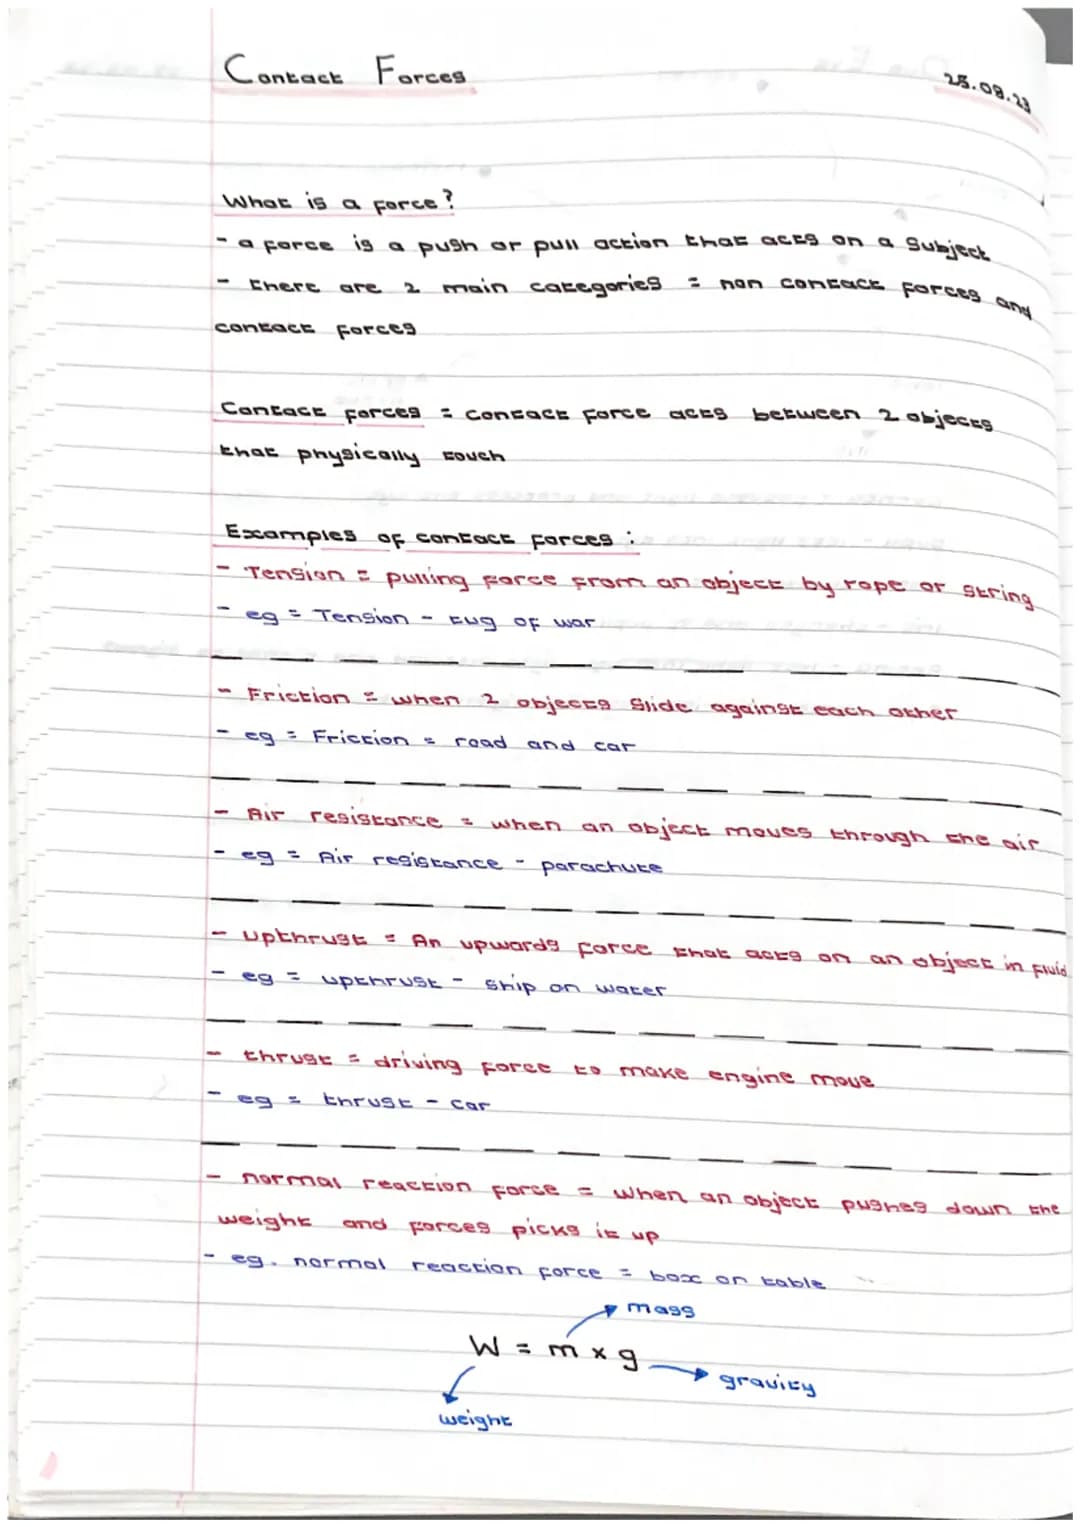 Contact Forces
25.08.23
What is a force?
- a force is a push or pull action that acts on a Subject
- there are 2 main categories = non contact forces and
contact forces
Contact forces = contact force acts between 2 objects
that physically touch
Examples of contact forces :
- Tension = pulling force from an object by rope or string
- eg = Tension - tug of war
- Friction = when 2 objects slide against each other
- eg = Friction = road and car
- Air resistance = when an object moves through the air
- eg = Air resistance - parachute
- upthrust = An upwards force that acts on an object in fluid
- eg = upthrust - ship on water
- thrust = driving force to make engine move
- eg = thrust - car
- normal reaction force = when an object pushes down the
weight and forces picks it up
- eg. normal reaction force = box on table
mass
W = m x g
gravity
weight